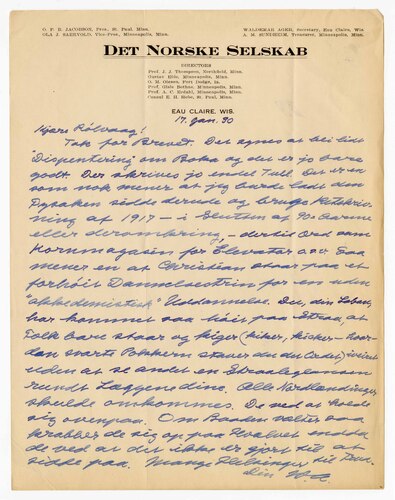 O. F. B. JACOBSON, Pres., St. Paul, Minn.
OLA J. SAERVOLD, Vice-Pres., Minneapolis, Minn.
WALDEMAR AGER, Secretary, Eau Claire, Wis.
A. M. SUNDHEIM, Treasurer, Minneapolis, Minn.
DET NORSKE SELSKAB
DIRECTORS
Prof. J. J. Thompson, Northfield, Minn.
Gustav Eide, Minneapolis, Minn.
O. M. Oleson, Fort Dodge, Ia.
Prof. Gisle Bothne, Minneapolis, Minn.
Prof. A. C. Erdahl, Minneapolis, Minn.
Consul E. H. Hobe, St. Paul, Minn.
EAU CLAIRE, WIS.
17. Jan. 30
Kjære Rölvaag!
Tak for Brevet. Det synes at bli lidt
"Dispentering" om Boka og det er jo bare
godt. Der skrives jo endel Tull. Der er en
som nok mener at jeg burde ladt den
sidde derude og bruge Retskriv-
ning af 1917 – i Slutten af 90 Aarene
eller deromkring, – dertil Ord som
Kornmagasin for Elevator o.s.v. Saa
mener en at Christian staar paa et
forhöit Dannelsestrin for en uden
Uddannelse. Du, din
har kommet saa höit paa Straa, at
Folk bare staar og kiger (kiker, kikker – hvor-
dan svarte Pokkeren staver du det Ordet)
uden at se andet en Straaleglansen
rundt Læggene dine. Alle Nordlændinger
skulde omkommes. De ved at holde
sig ovenpaa. Om Baaden vælter saa
krabber de sig op paa Hvalvet endda
de ved at det ikke er gjort til at
sidde paa. Mange Hilsinger til
Din W.A.